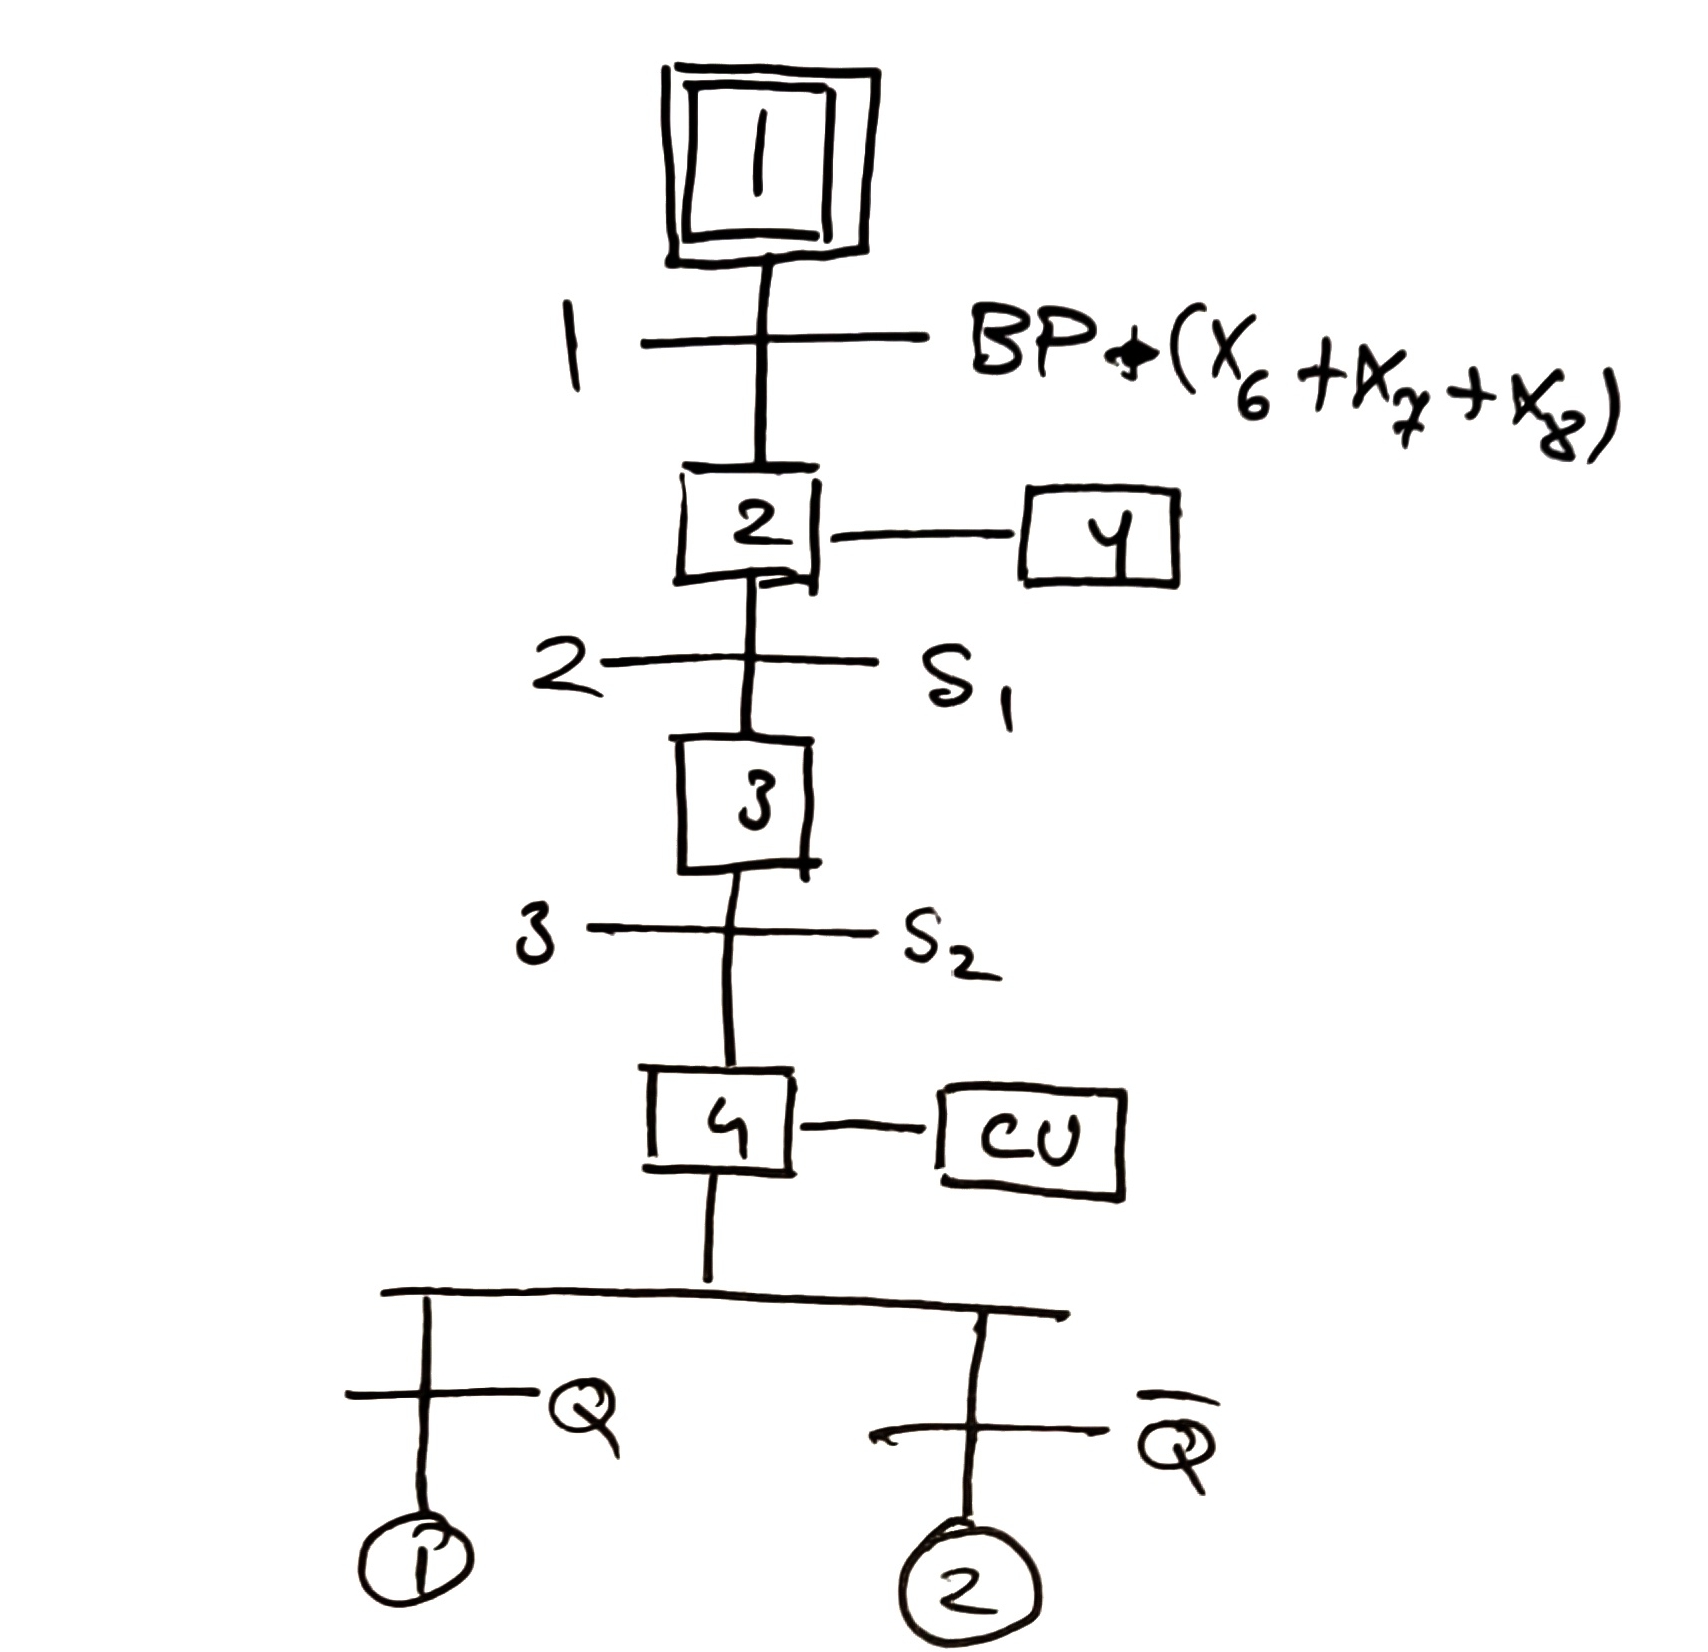 1
1 BP·(X6+X7+X8)
2 Y
2 S1
3
3 S2
4 CU
Q Q̅
1 2